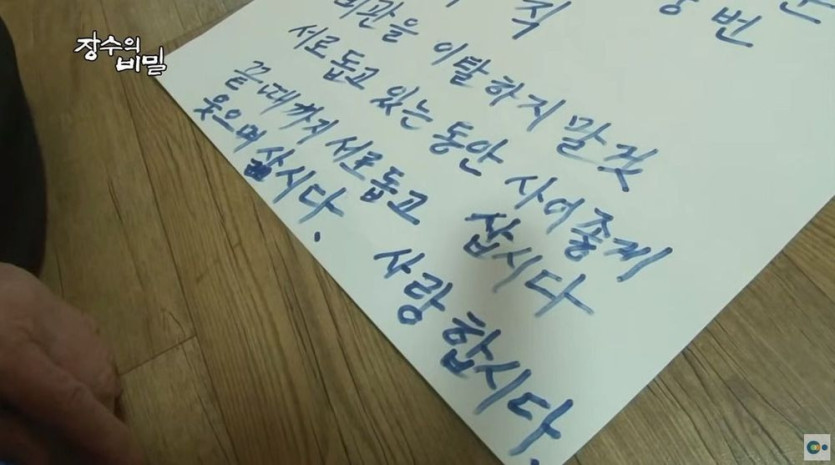 장수의
비밀
직
번
이탈하지 말것
서로 돕고 있는 동안 사이좋게
삽시다
끝때까지 서로 돕고
웃으며 삽시다.
사랑합시다.